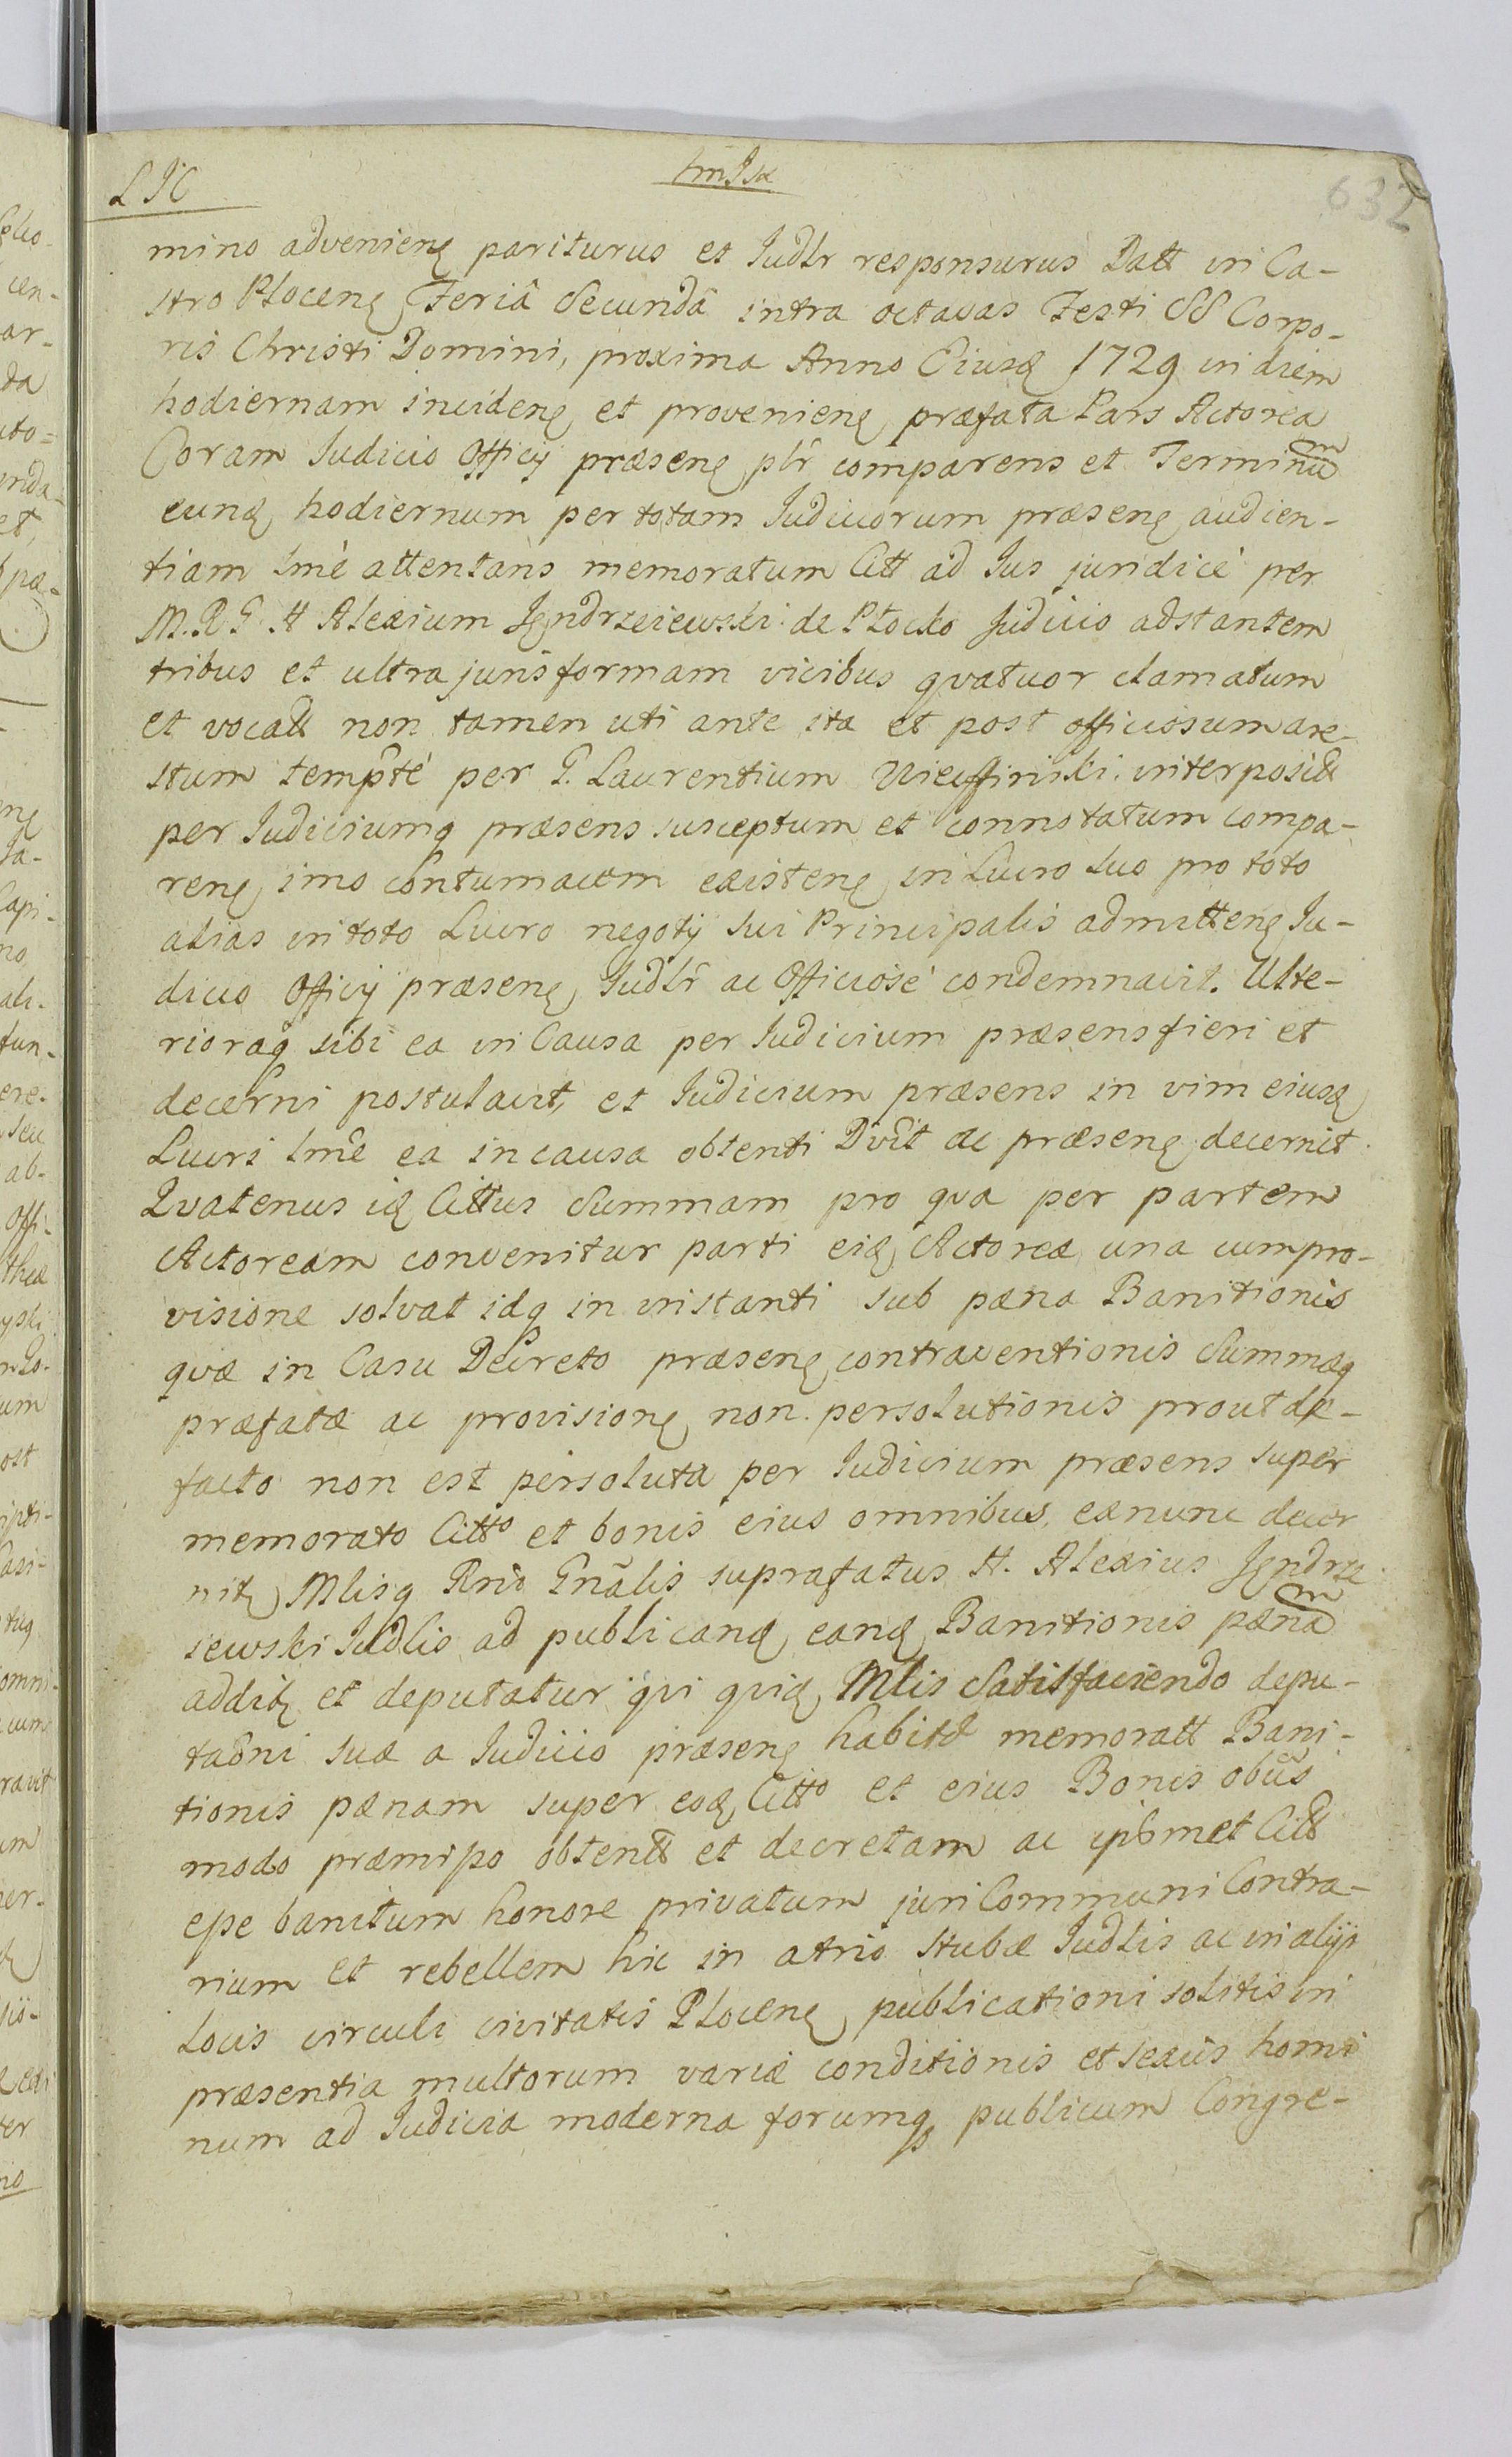 632
mino advenienę pariturus et Judlr responsurus Datt in Ca-
stro Plocenę Feriâ Secundâ intra octavas Festi SS Corpo-
ris Christi Domini, proxima Anno Eiusą 1729 in diem
hodiernam incidenę et provenienę præfata Pars Actorea
Coram Judicio Officij præsenę plr̃ comparens et Terminum
euną hodiernum per totam Judiciorum præsenę audien-
tiam lmè attentans memoratum Citt ad Jus juridicè per
M. R. G. H Alexium Jędrzeiewski de Plocko Judicio adstantem
tribus et ultra juris formam vicibus qvatuor clamatum
et vocatt non tamen uti ante ita et post officiosum are-
stum tempt̃è per G. Laurentium interposill
per Judiciumq præsens susceptum et connotatum compa-
renę imo contumacem existenę in Lucro suo pro toto
alias in toto Lucro negotij sui Principalis admittenę Ju-
dicio Officij præsenę Judlr̃ ac Officiosè condemnavit. Ulte-
rioraq̃ sibi ea in Causa per Judicium præsens fieri et
decerni postulavit, et Judicium præsens in vim eiusą
Lucri lmẽ ea in causa obtenti Dvit̃ ac præsenę decernit
Qvatenus ią Cittus Summam pro qva per partem
Actoream convenitur parti eią Actoreæ una cum pro-
visione solvat idq in instanti sub pæna Banitionis
qvæ in Casu Decreto præsenę contraventionis Summæq
præfatæ ac provisionę non persolutionis prout de-
facto non est persoluta per Judicium præsens super
memorato Citto et bonis eius omnibus exnunc decer
nitę Mlisq Rñi Gnãlis suprafatus H. Alexius Jędrze
iewski Judlis ad publicaną eaną Banitionis pænam
additę et deputatur qvi qvią Mlis Satisfaciendo depu-
taõni suæ a Judicio præsenę habitæ memoratt Bani-
tionis pænam super eoą Citto et eius Bonis obũs
modo præmisso obtentt et decretam ac ipsmet Citt
esse banitum honore privatum juri Communi Contra-
rium et rebellem hic in atrio Stubæ Judlis ac in alijs
Locis circuli civitatis Plocenę publicationi solitis in
præsentia multorum variæ conditionis et sexûs homi
num ad Judicia moderna forumq publicum Congre-